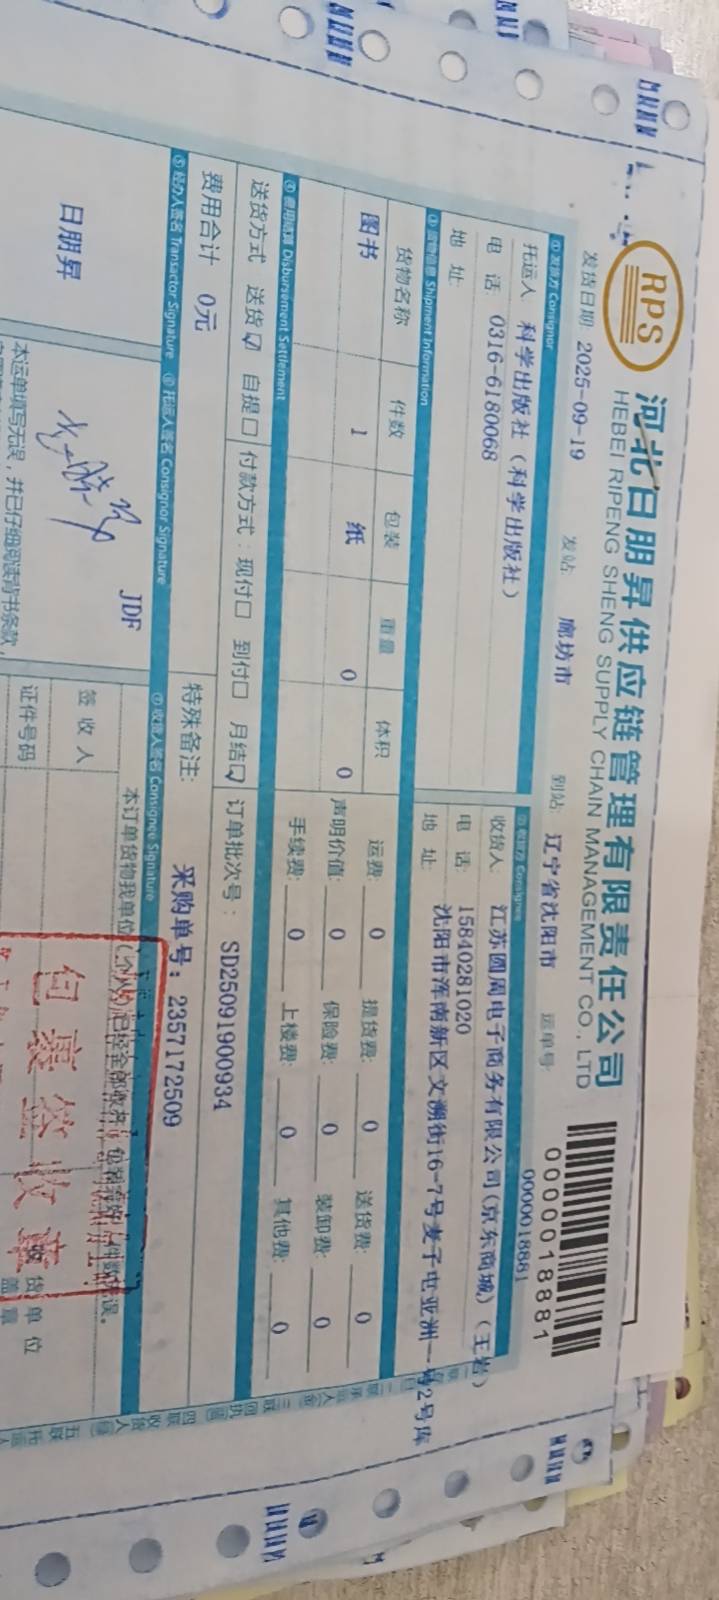 RPS
河北日朋昇供应链管理有限责任公司
HEBEI RIPENG SHENG SUPPLY CHAIN MANAGEMENT CO., LTD
0000018881
发货日期: 2025-09-19 发站: 廊坊市 到站: 辽宁省沈阳市 运单号: 0000018881
① 发货方 Consignor ② 收货方 Consignee
托运人 科学出版社（科学出版社） 收货人: 江苏圆周电子商务有限公司(京东商城)（王岩）
电 话: 0316-6180068 电 话: 15840281020
地 址: 地 址: 沈阳市浑南新区文溯街16-7号麦子屯亚洲一号2号库
③ 货物信息 Shipment Information
货物名称 件数 包装 重量 体积 运费: 0 提货费: 0 送货费: 0
图书 1 纸 0 0 声明价值: 0 保险费: 0 装卸费: 0
手续费: 0 上楼费: 0 其他费: 0
④ 费用结算 Disbursement Settlement
送货方式 送货☑ 自提□ 付款方式: 现付□ 到付□ 月结☑ 订单批次号: SD25091900934
费用合计 0元 特殊备注: 采购单号: 2357172509
⑤ 经办人签名 Transactor Signature ⑥ 托运人签名 Consignor Signature ⑦ 收货人签名 Consignee Signature
日朋昇
JDF
本订单货物我单位(个人)已经全部收
签 收 人
包裹签收章
证件号码
货单位
盖章
本运单填写无误，并已仔细阅读背书条款，